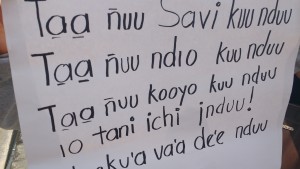 Ta̱a̱ ñuu Savi kuu nduu
Ta̱a̱ ñuu ndio kuu nduu
Ta̱a̱ ñuu kooyo kuu nduu
io tani ichi jnduu!
va'a de'e nduu